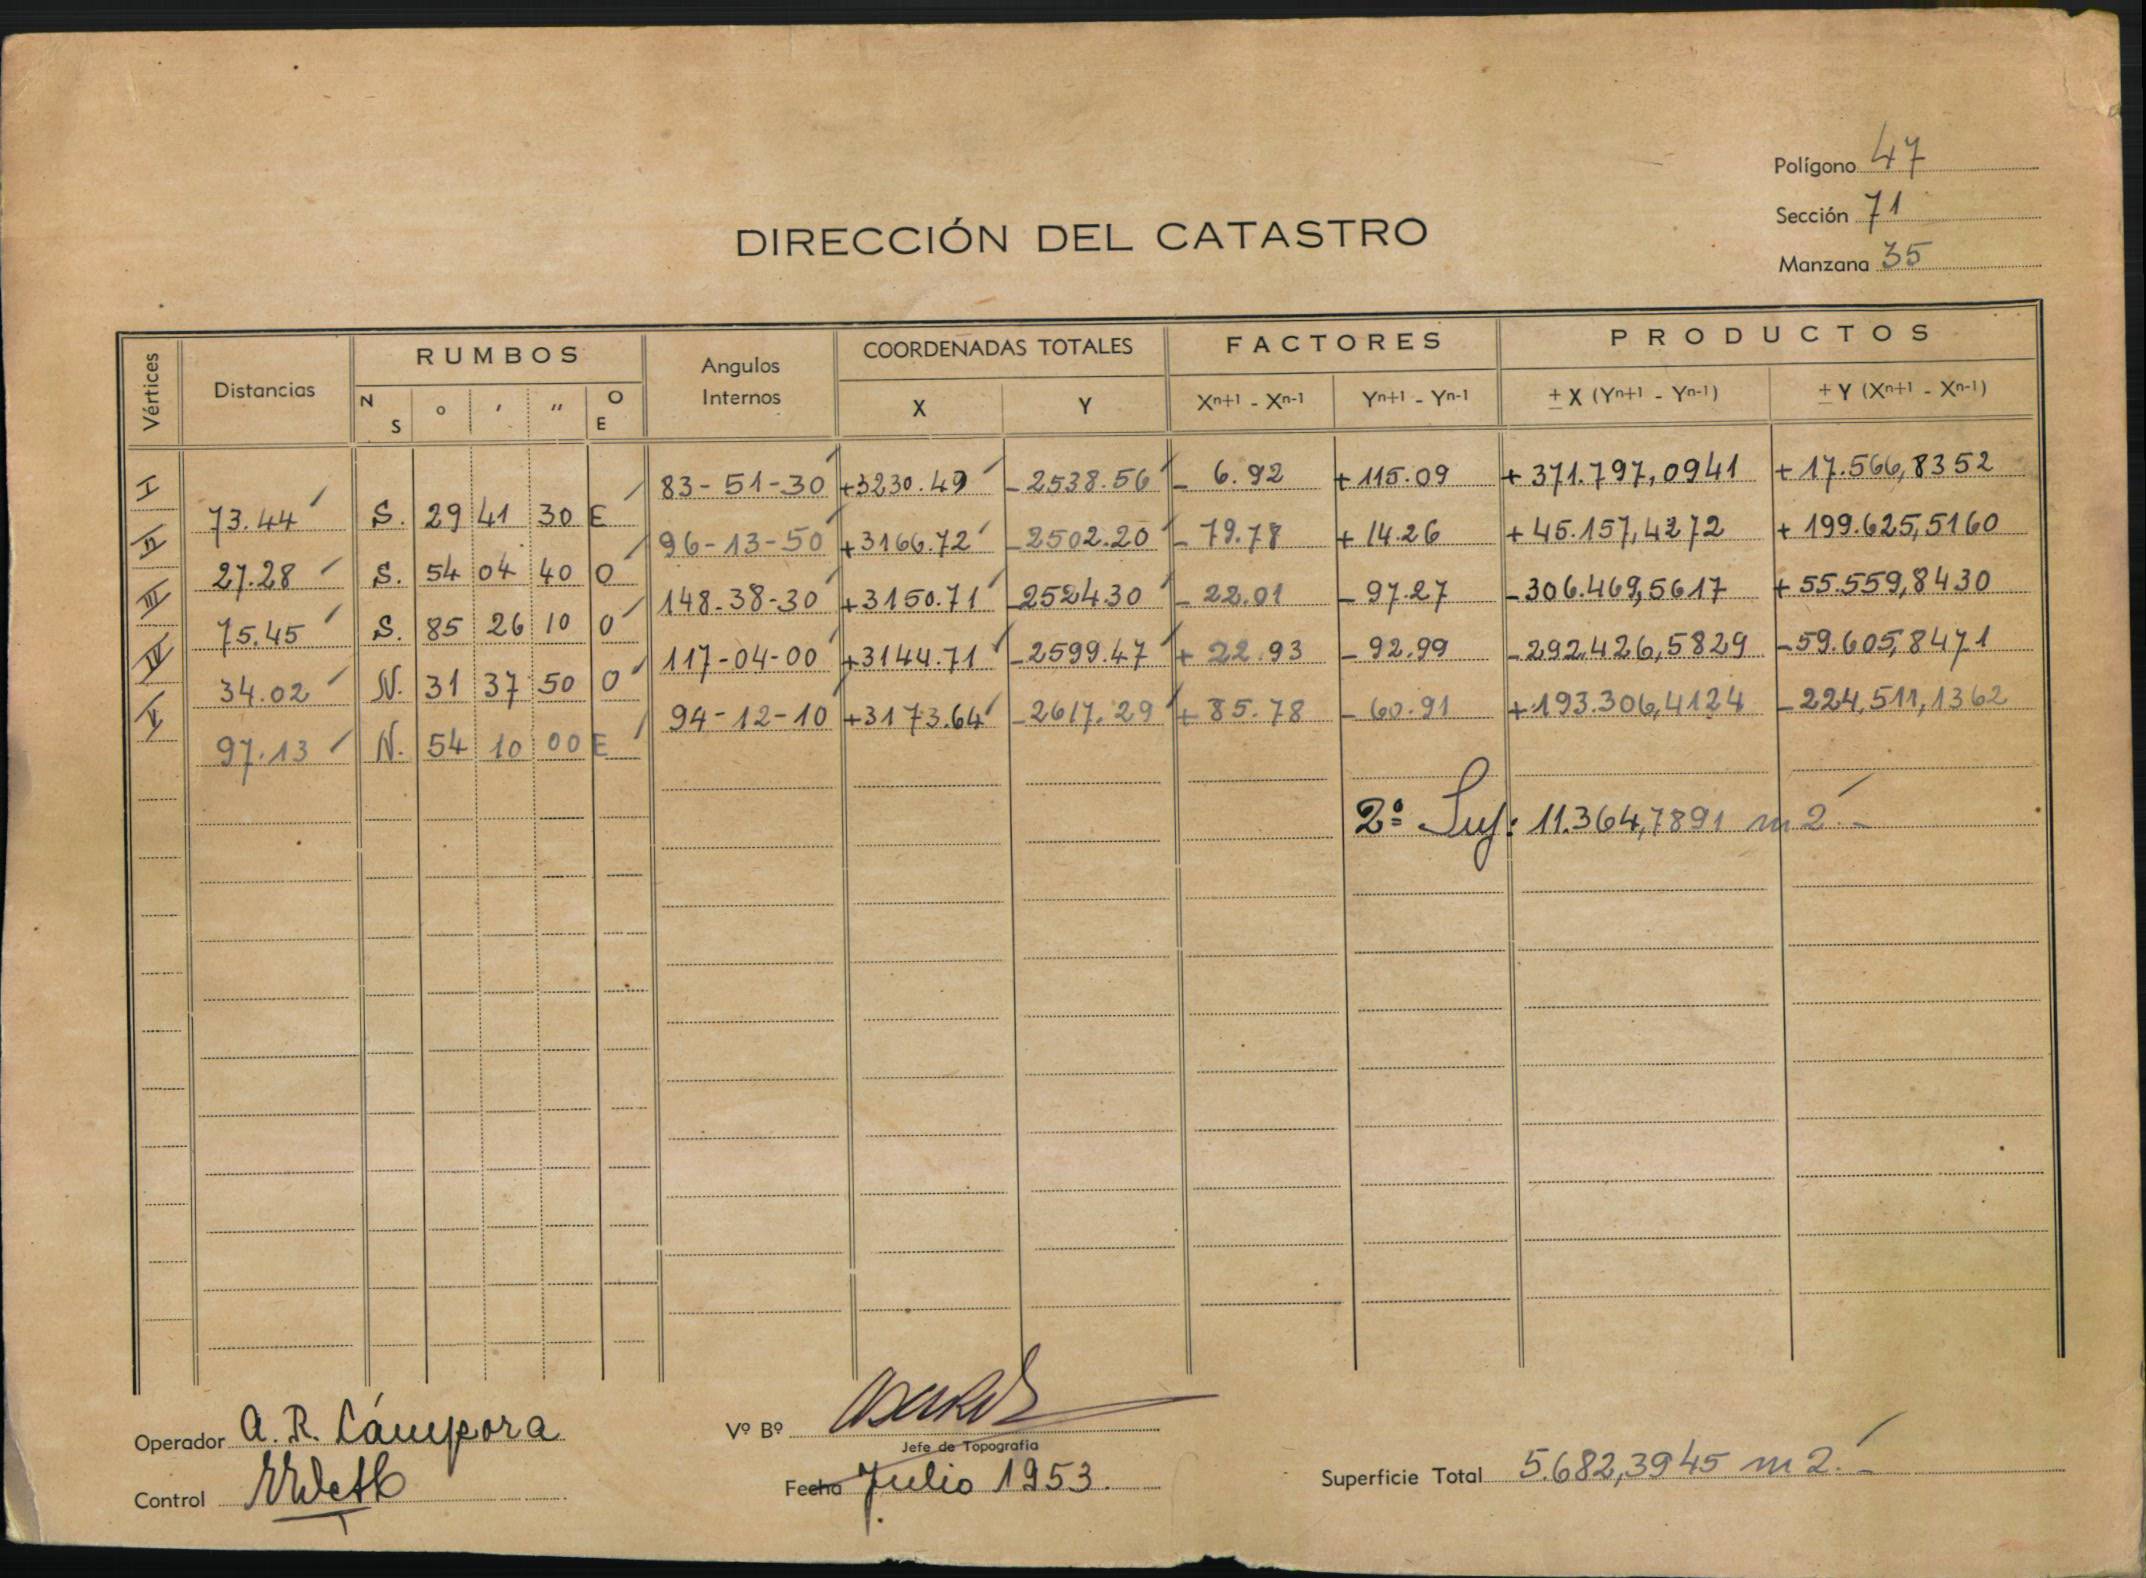 Polígono 47
Sección 71
Manzana 35
DIRECCIÓN DEL CATASTRO
Vértices Distancias RUMBOS Angulos Internos COORDENADAS TOTALES FACTORES PRODUCTOS
N S o ' " O E X Y Xn+1 - Xn-1 Yn+1 - Yn-1 ± X (Yn+1 - Yn-1) ± Y (Xn+1 - Xn-1)
I 83-51-30 +3230.49 -2538.56 - 6.92 +115.09 +371.797,0941 +17.566,8352
73.44 S. 29 41 30 E
II 96-13-50 +3166.72 -2502.20 - 79.78 +14.26 +45.157,4272 +199.625,5160
27.28 S. 54 04 40 O
III 148-38-30 +3150.71 -2524.30 - 22.01 -97.27 -306.469,5617 +55.559,8430
75.45 S. 85 26 10 O
IV 117-04-00 +3144.71 -2599.47 + 22.93 -92.99 -292.426,5829 -59.605,8471
34.02 N. 31 37 50 O
V 94-12-10 +3173.64 -2617.29 + 85.78 - 60.91 +193.306,4124 -224,511,1362
97.13 N. 54 10 00 E
2ª Suf: 11.364,7891 m2.-
Operador A. R. Cámpora
Vº Bº
Jefe de Topografía
Control
Fecha Julio 1953.
Superficie Total 5.682,3945 m2.-